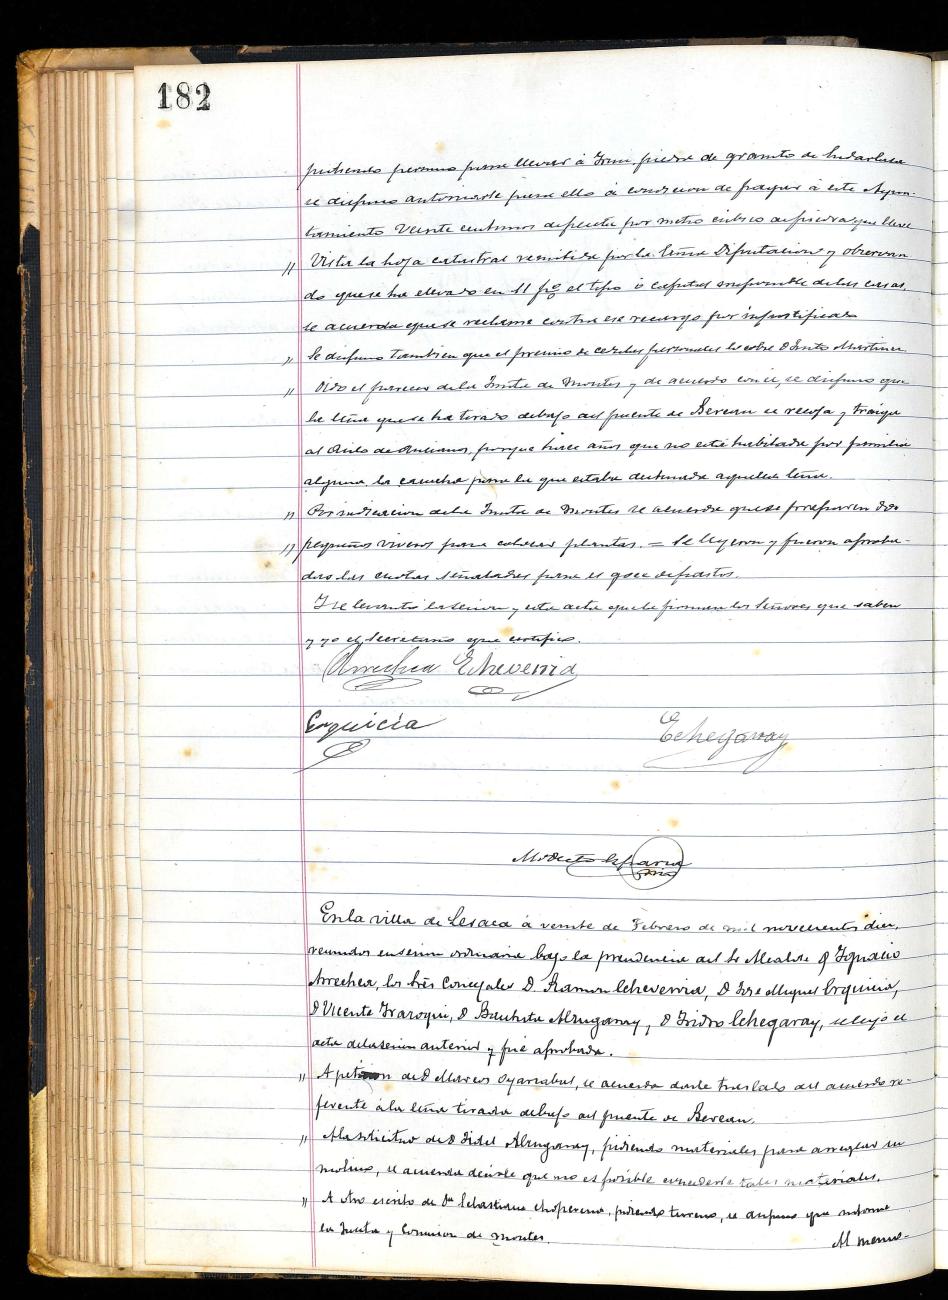 182
pidiendo permiso para llevar á Irun, piedra de granito de Endarlaza
se dispuso autorizarle para ello á condicion de pagar á este Ayun-
tamiento veinte centimos de peseta por metro cúbico de piedra que lleve
" Vista la hoja catastral remitida por la Exma Diputacion y observan
do que se ha elevado en 11 p% el tipo ó capital imponible de las casas,
se acuerda que se reclame contra ese recargo por injustificado
" Se dispuso tambien que el premio de cedulas personales lo cobre D Martinez
" Oido el parecer de la Junta de Montes y de acuerdo con él, se dispuso que
la leña que se ha tirado debajo del puente de Berean se recoja y traiga
al Asilo de Ancianos, porque hace años que no está habitada por familia
alguna la casucha para la que estaba destinada aquella leña.
" Por indicacion de la Junta de Montes se acuerda que se preparen dos
" pequeños viveros para colocar plantas. = Se leyeron y fueron aproba-
das las cuotas señaladas para el goce de pastos.
Y se levantó la sesion y esta acta que la firman los Señores que saben
y yo el Secretario que certifico.
Arrechea Echeverria
Erquicia Echegaray
Modesto
En la villa de Lesaca á veinte de Febrero de mil novecientos diez,
reunidos en sesion ordinaria bajo la presidencia del Sr Alcalde D Ignacio
Arrechea, los Srês Concejales D. Ramon Echeverria, D José Miguel Erquicia,
D Vicente Iraroqui, D Bautista Alzugaray, D Isidro Echegaray, se leyó el
acta de la sesion anterior y fué aprobada.
" A peticion de D Marcos Oyarzabal, se acuerda darle traslado del acuerdo re-
ferente á la leña tirada debajo del puente de Berean.
" A la solicitud de D Fidel Alzugaray, pidiendo materiales para arreglar su
molino, se acuerda decirle que no es posible concederle tales materiales.
" A otro escrito de Dª Sebastiana pidiendo terreno, se dispuso que informe
la Junta y Comision de Montes.
Al menos-